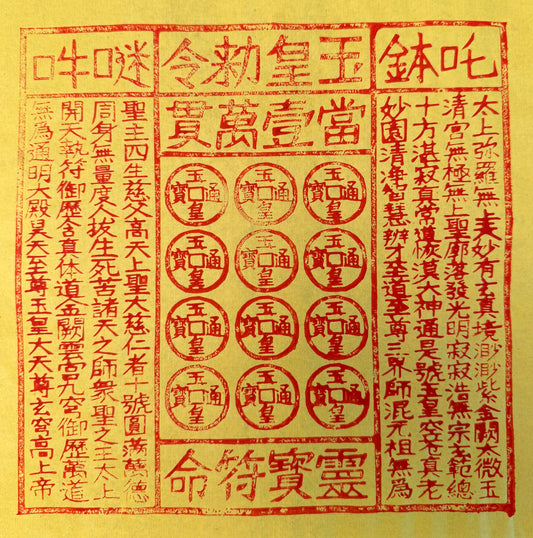 吒鉢
玉皇勅令
吽
太上弥羅無上天妙有玄真境渺渺紫金闕太微玉
清宮無極無上聖廓落發光明寂寂浩無宗玄範總
十方湛寂真常道恢漠大神通是號玉皇穹蒼真老
妙園清淨智慧辯才至道至尊三界師混元祖無為
當壹萬貫
玉皇通寶
玉皇通寶
玉皇通寶
玉皇通寶
玉皇通寶
玉皇通寶
玉皇通寶
玉皇通寶
玉皇通寶
玉皇通寶
玉皇通寶
玉皇通寶
靈寶符命
聖主四生慈父高天上聖大慈仁者十號圓滿萬德
周身無量度人拔生死苦諸天之師衆聖之王太上
開天執符御歷含真体道金闕雲宮九穹御歷萬道
無為通明大殿昊天至尊玉皇大天尊玄穹高上帝